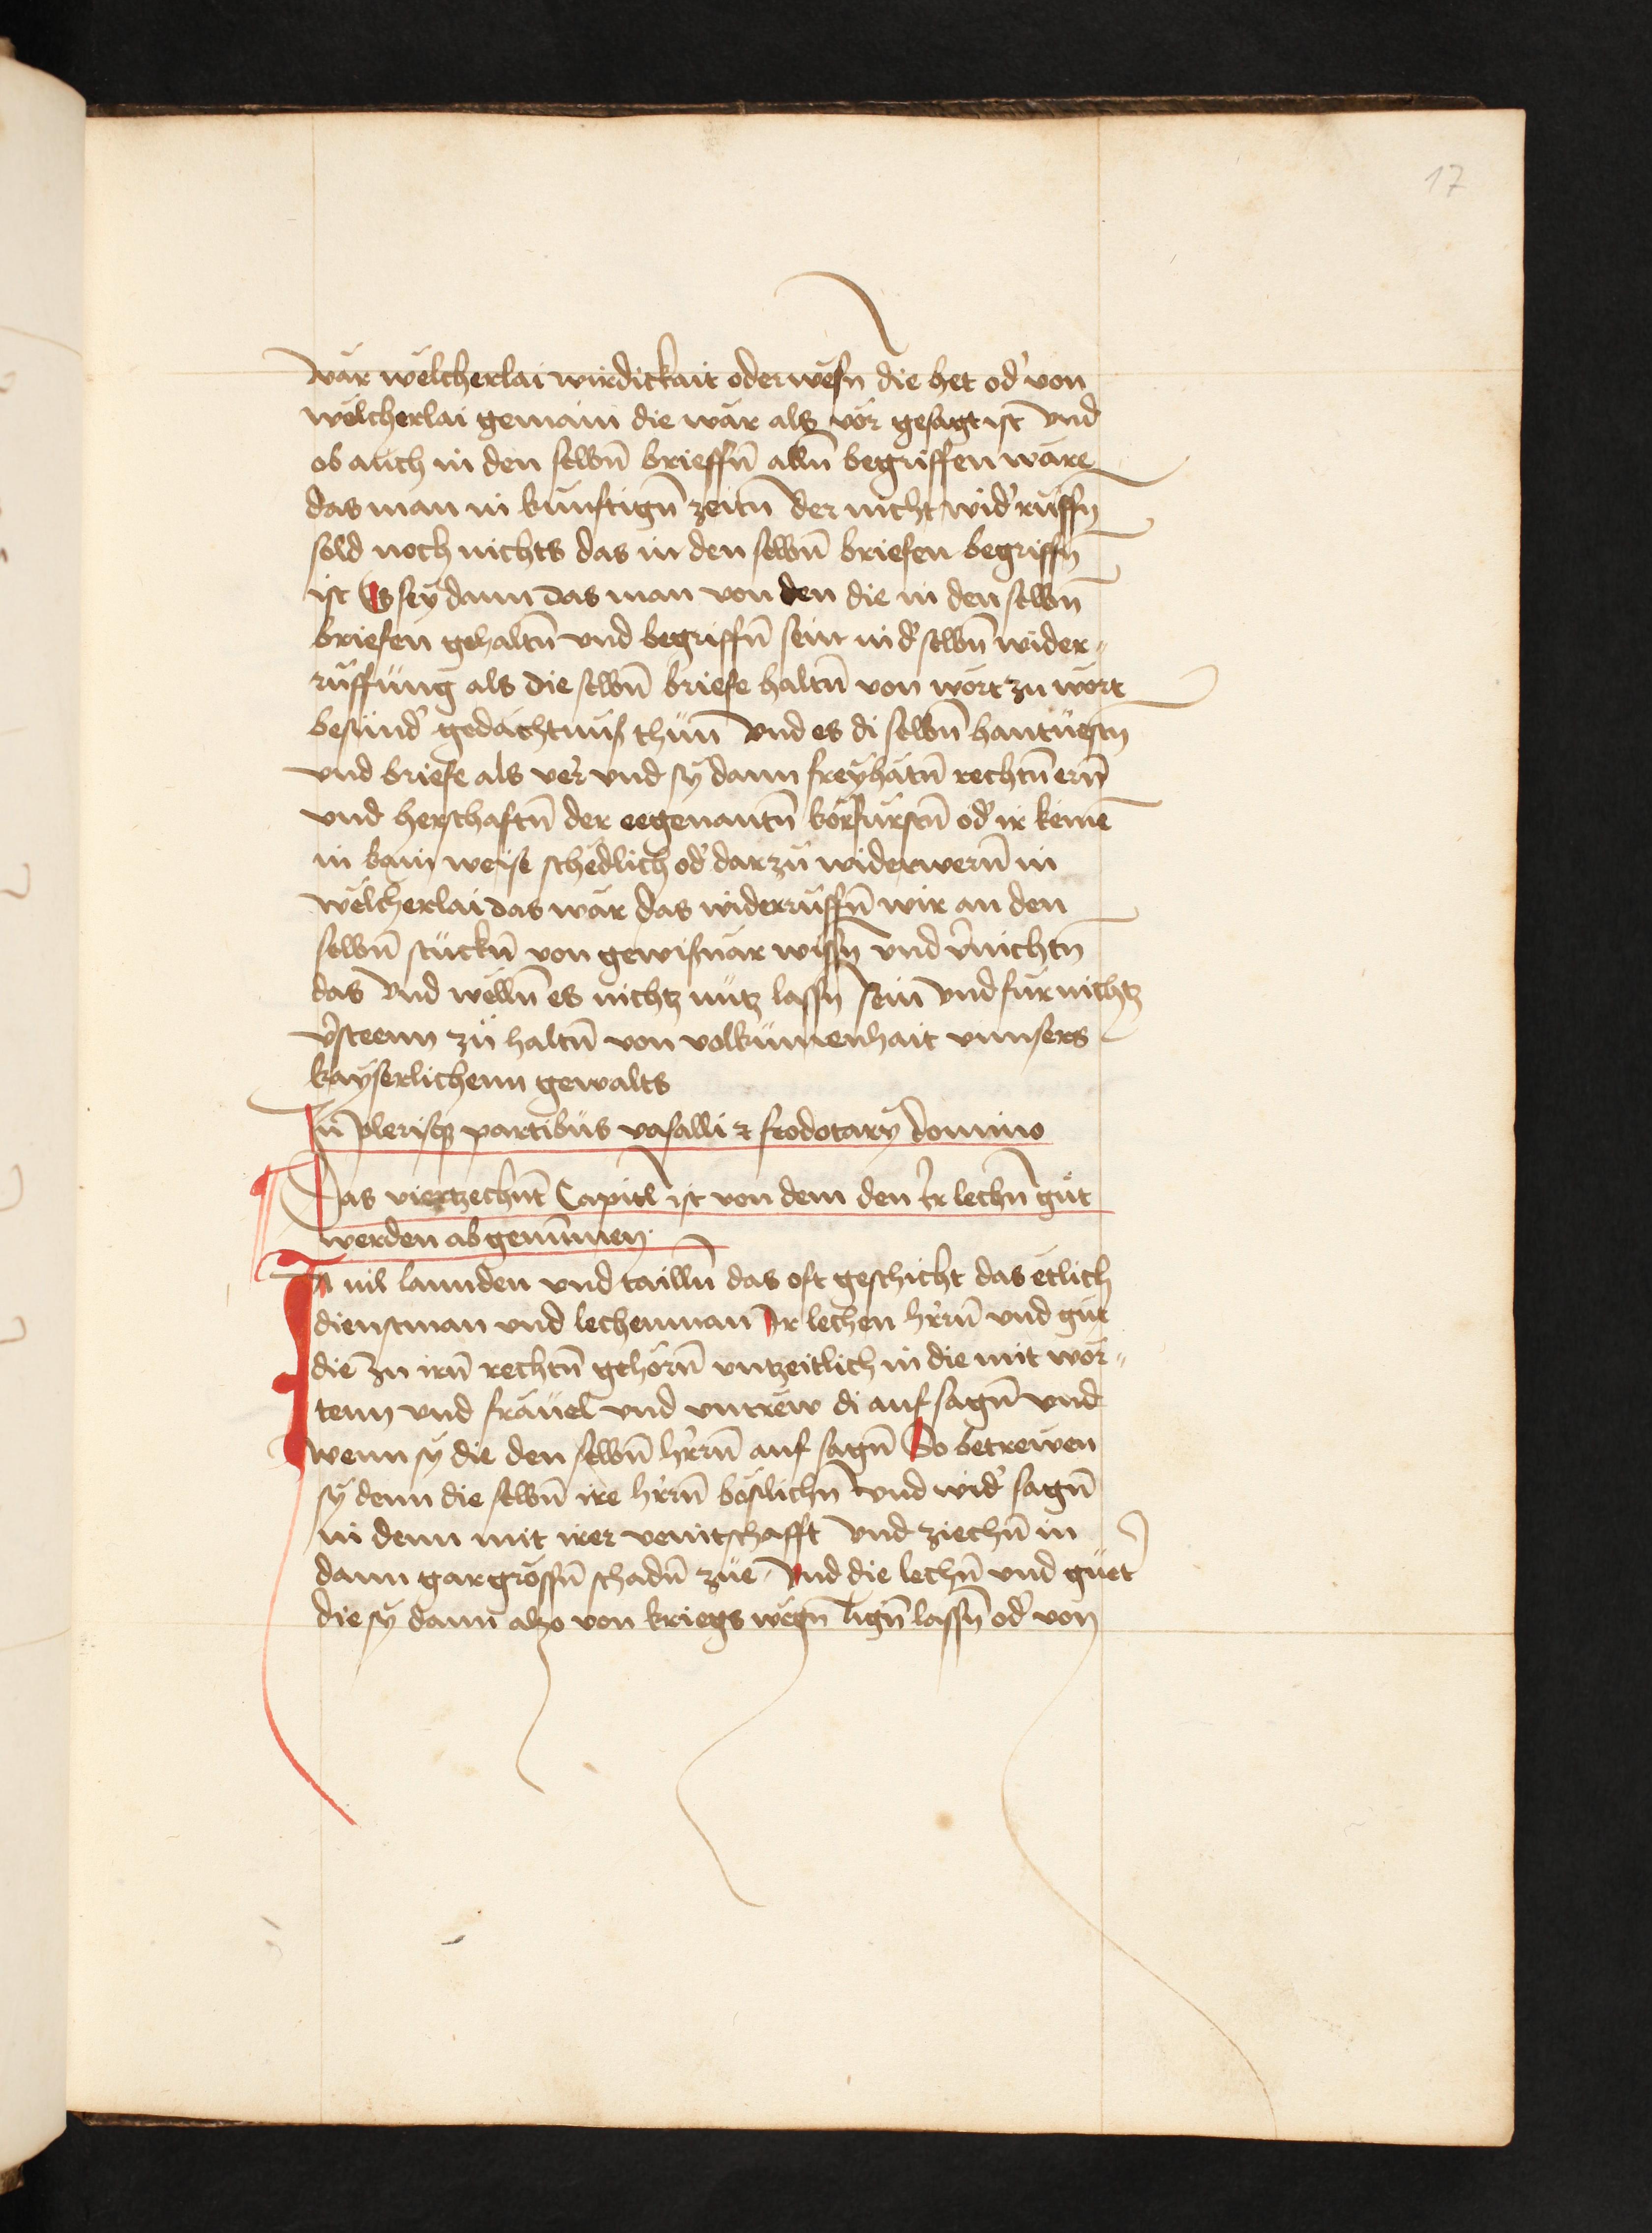 17
wär welcherlai wirdickait oder wesn̄ die het od' von
welcherlai gemain die wär als vor gesagt ist vnd
ob auch in den selbn̄ brieffn̄ alln̄ begriffen wäre
das man in kunftign̄ zeitn̄ der nicht wid'ruffn̄
sold noch nichts das in den selbn̄ briefen begriffn̄
ist Es sey dann das man von den die in den selbn̄
briefen gehaltn̄ vnd begriffn̄ sein in d' selbn̄ wider-
ruffung als die selbn̄ briefe haltn̄ von wort zu wort
besund' gedächtnuß thun vnd es di selbn̄ hantuestn̄
vnd briefe als ver' vnd sy dann freyhätn̄ rechtn̄ ern̄
vnd herschaftn̄ der eegenantn̄ korfurstn̄ od' ir keinē
in kain weise schedlich od' darzu widerwern̄ in
welcherlai das wär das widerruffn̄ wir an den
selbn̄ stuckn̄ von gewisnär wissn̄ vnd v'nichtn̄
das vnd welln̄ es nichtz nütz lassn̄ sein vnd für nichtz
v'steenn zu haltn̄ von volkumenhait vnnsers
kayserlichenn gewalts
In pleriscqz partibus vasalli et feodotary domino
Das viertzechnt Capitl ist von dem den Ir lechn̄ gut
werden abgenummen
In vil lannden vnd tailln̄ das oft geschicht das etlich
dienstman vnd lechenman Ir lechen h'rn̄ vnd gut
die zu irn̄ rechtn̄ gehorn̄ vntzeitlich in die mit wor-
tenn vnd fräuel vnd vntrew di auf sagn̄ vnd
wenn sy die den selbn̄ h'rn̄ auf sagn̄ So betreiben
sy denn die selbn̄ ire h'rn̄ böslichn̄ vnd wid' sagn̄
in denn mit irer veintschafft vnd ziechn̄ in
dann gar grossn̄ schadn̄ zue Vnd die lechn̄ vnd guet
die sy dann alzo von kriegs wegn̄ lign̄ lassn̄ od' von